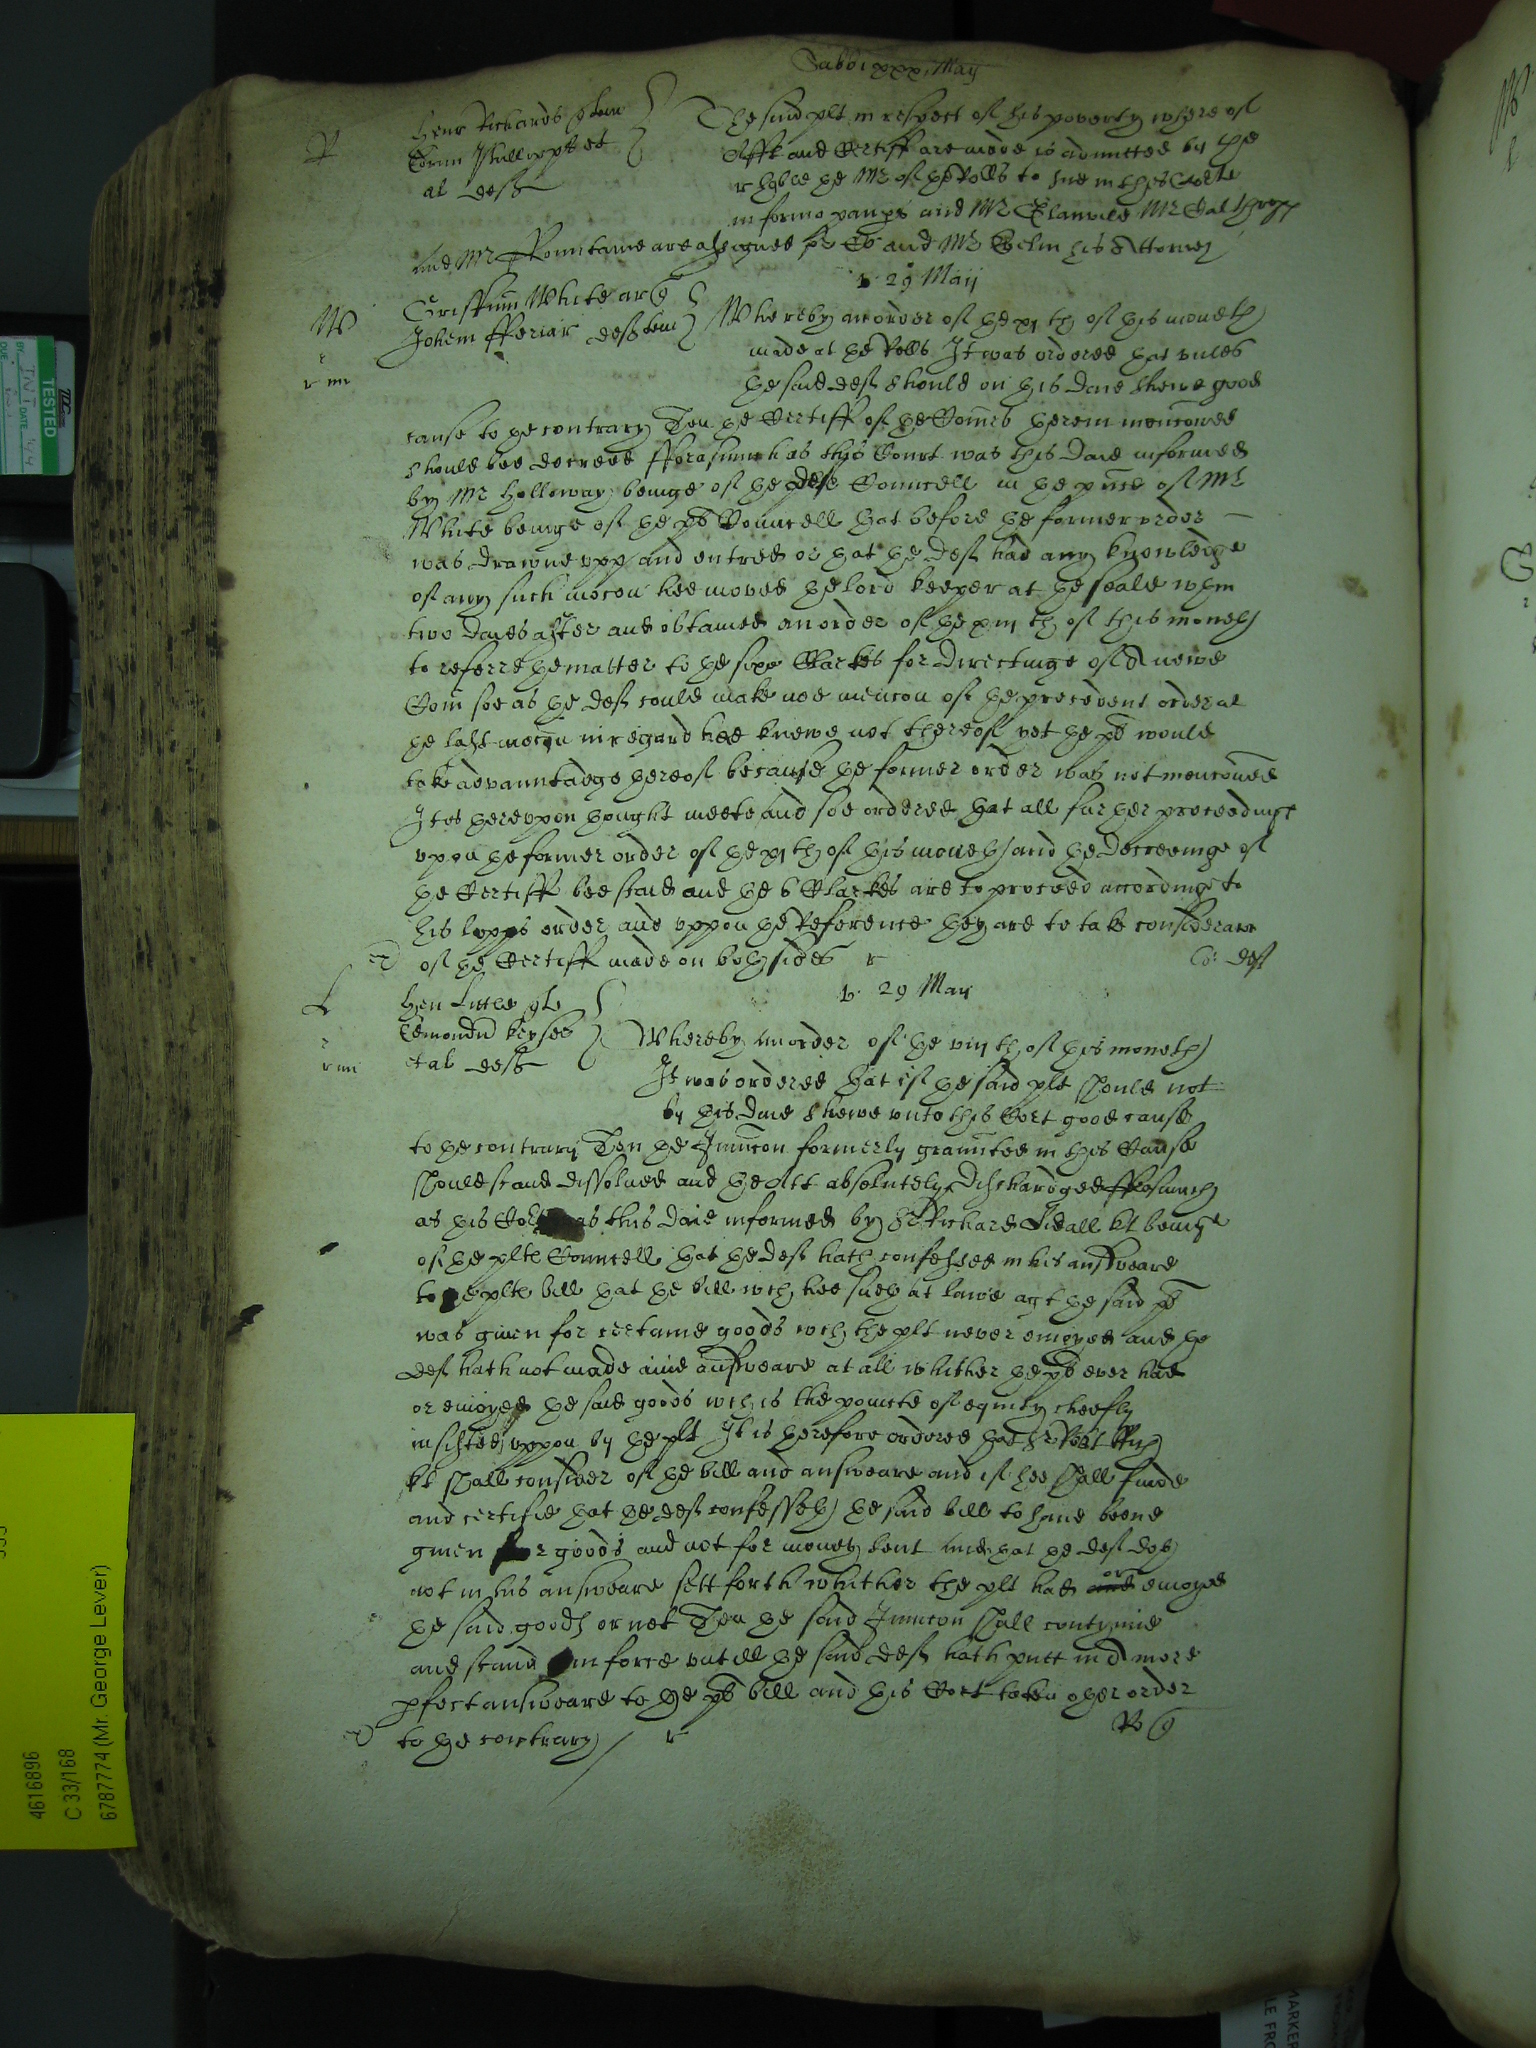 Sabbi xxx May
R
Henr Richards
al deft
The said plt in respect of his poverty whereof
Afft and Certiff are made is admitted by the
right hoble the Mr of the Rolls to sue in this Corte
in forma paupis and Mr Glanvile Mr Calthropp
and Mr Fountaine are assigned and Mr his Attorney
p. 29 May
W
White ar
Johem fferiar deften
Whereby an order of the xj th of this moneth
made at the Rolls It was ordered that unles
the said deft should on this daie shewe good
cause to the contrary Then the Certiff of the Comrs therein mencioned
should bee decreed fforasmuch as this Court was this daie informed
by Mr Holloway beinge of the defts Councell in the pnce of Mr
White beinge of the plts Councell that before the former order
was drawne upp and entred or that the deft had any knowledge
of any such mocon hee moved the lord keeper at the seale within
two daies after and obtained an order of the xiij th of this moneth
to referre the matter to the sixe Clarkes for directinge of a newe
Com soe as the deft could make noe mencon of the precedent order at
the last mocon in regard hee knewe not thereof yet the plt would
take advauntadge thereof because the former order was not mencioned
It is thereupon thought meete and soe ordered that all further proceedinge
upon the former order of the xj th of this moneth and the decreeinge of
the Certiff bee staid and the 6 Clarkes are to proceed accordinge to
his lopps order and uppon the Reference they are to take consideracon
of the Certiff made on both sides r
Co: deft
p. 29 May
L
Hen Little plt
Edmondu keyser
et al deft
Whereby an order of the viij th of this moneth
It was ordered that if the said plt should not
by this daie shewe unto this Cort good cause
to the contrary Then the Iniuncon formerly graunted in this Cause
should stand dissolved and the Att absolutely dischardged fforasmuch
as this Cort was this daie informed by Sr Richard Tidall kt beinge
of the plts Councell that the deft hath confessed in his answeare
to the plts bill that the bill wch hee sueth at lawe agt the said plt
was given for certaine goods wch the plt never enioyed and the
deft hath not made anie answeare at all whither the plt ever had
or enioyed the said goods wch is the pointe of equity cheefly
insisted uppon by the plt It is therefore ordered that Sr Robt Rich
kt shall consider of the bill and answeare and if hee shall finde
and certifie that the deft confesseth the said bill to have beene
given for goods and not for money lent and that the deft doth
not in his answeare sett forth whither the plt had or enioyed
the said goods or not Then the said Iniuncon shall contynue
and stand in force untill the said deft hath putt in a more
pfect answeare to the plts bill and this Cort taken other order
to the contrary / r
TESTED
BY INT DATE 4/4
4616896
C 33/168
6787774 (Mr. George Lever)